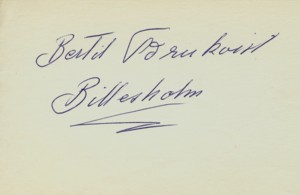 Bertil Brukvist
Billesholm